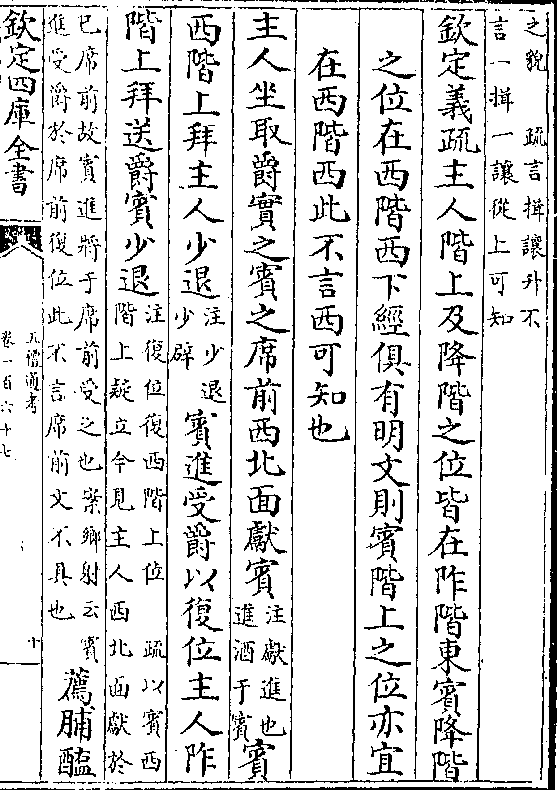 之貌　疏言揖讓升不
言一揖一讓從上可知
欽定義疏主人階上及降階之位皆在阼階東賓降階
之位在西階西下經俱有明文則賓階上之位亦宜
在西階西此不言西可知也
主人坐取爵實之賓之席前西北面獻賓注獻進也進酒于賓賓
西階上拜主人少退注少退少辟賓進受爵以復位主人阼
階上拜送爵賓少退注復位復西階上位　疏以賓西階上疑立今見主人西北面獻於
已席前故賓進將于席前受之也案鄉射云賓進受爵於席前復位此不言席前文不具也薦脯醢
欽定四庫全書
五禮通考
卷一百六十七
十